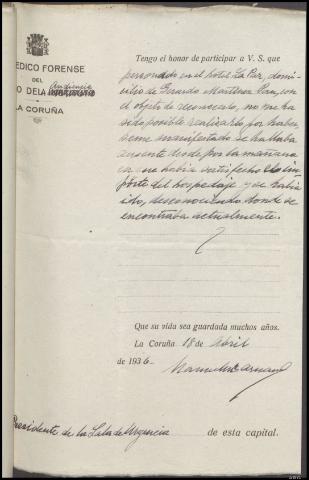 MEDICO FORENSE
DEL
Audiencia
O DE LA
LA CORUÑA
Tengo el honor de participar a V. S. que
personado en el hotel La Paz, domi-
cilio de Gerardo Martínez Pan, con
el objeto de reconocerlo, no me ha
sido posible realizarlo por haber-
seme manifestado se hallaba
ausente desde por la mañana
en que había satisfecho el im-
porte del hospedaje y se había
ido, desconociendo donde se
encontraba actualmente.
Que su vida sea guardada muchos años.
La Coruña 18 de Abril
de 1936-
Presidente de la Sala de Urgencia de esta capital.